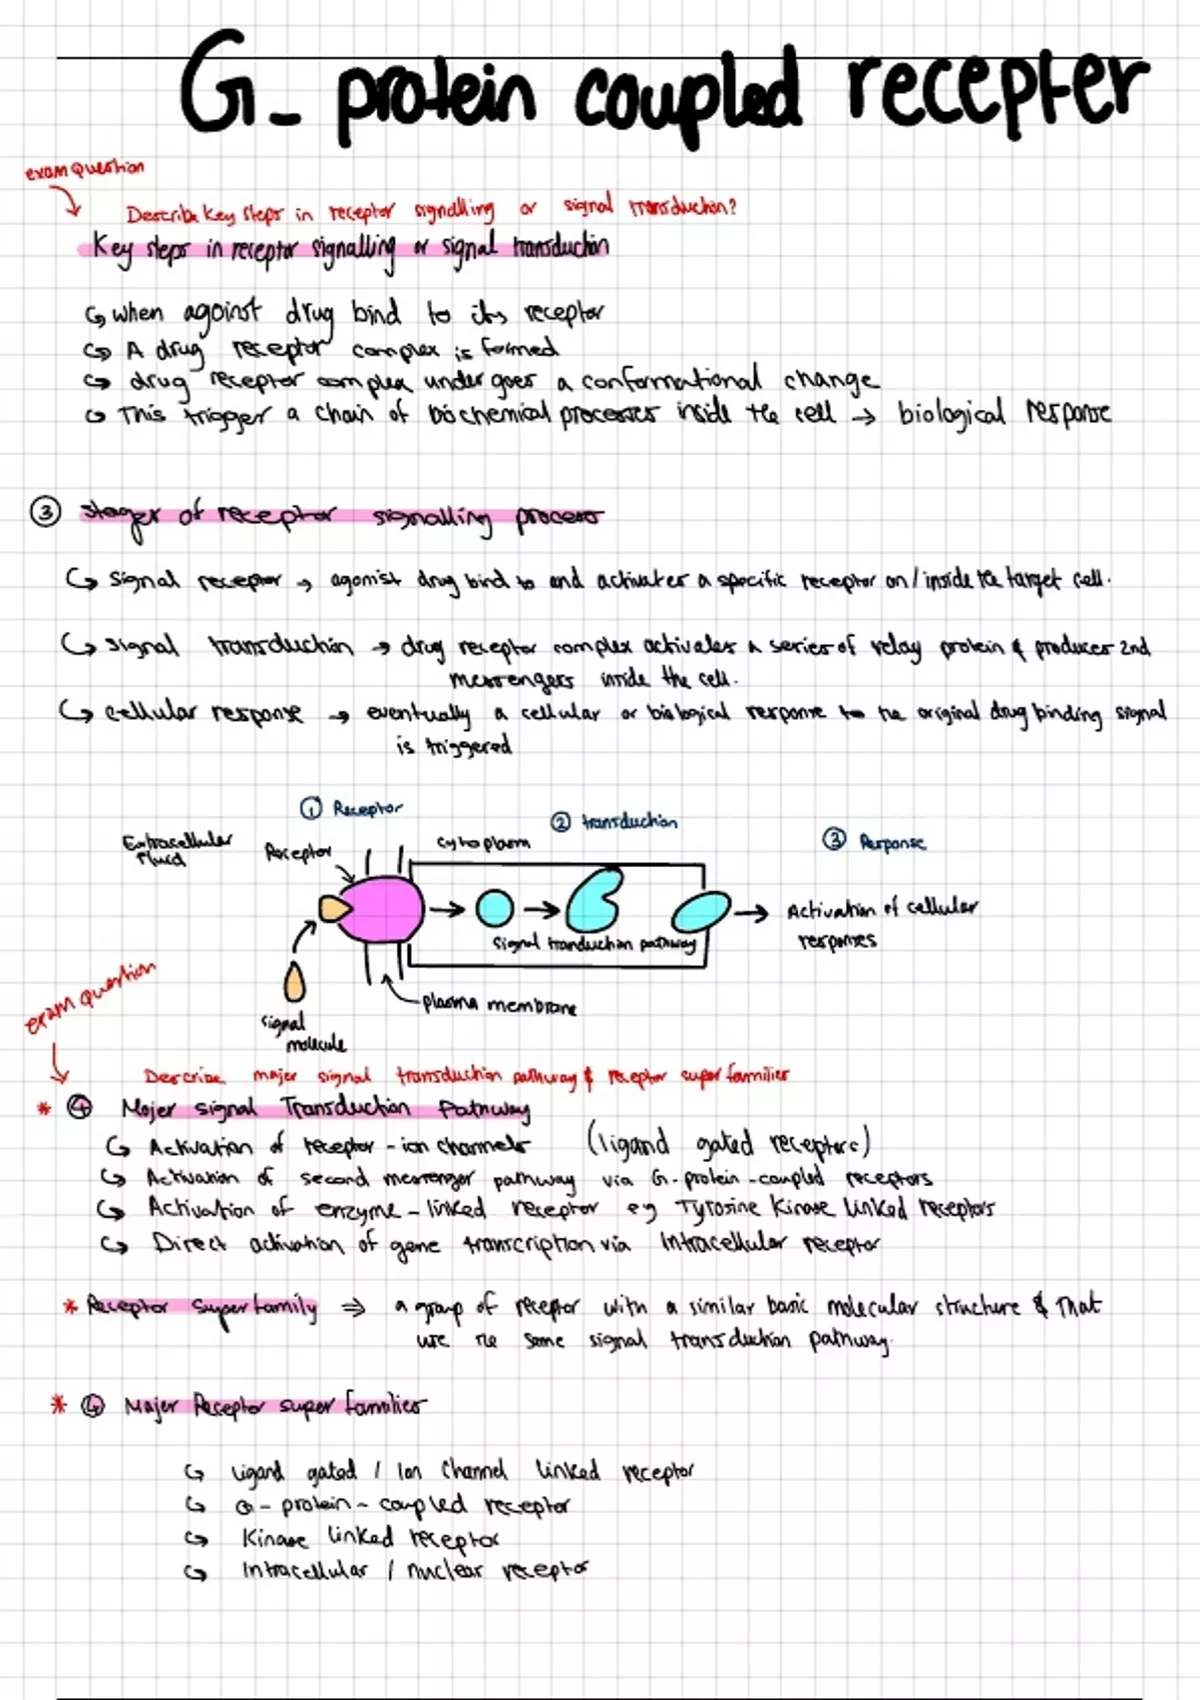 G- protein coupled recepter
exam question
Describe key steps in receptor signalling or signal transduction?
Key steps in receptor signalling or signal transduction
↳ when agonist drug bind to its receptor
↳ A drug receptor complex is formed
↳ drug receptor complex undergoes a conformational change
↳ This trigger a chain of biochemical processes inside the cell → biological response
③ stages of receptor signalling process
↳ Signal receptor → agonist drug bind to and activates a specific receptor on/inside the target cell.
↳ signal transduction → drug receptor complex activates a series of relay protein & produces 2nd
messengers inside the cell.
↳ cellular response → eventually a cellular or biological response to the original drug binding signal
is triggered
① Receptor
② transduction
③ Response
Extracellular
Fluid
Receptor
cytoplasm
Activation of cellular
responses
signal tranduction pathway
plasma membrane
signal
molecule
exam question
Describe major signal transduction pathway & receptor super families
* ④ Majer signal Transduction Pathway
↳ Activation of receptor - ion channels (ligand gated receptors)
↳ Activation of second messenger pathway via G-protein-coupled receptors
↳ Activation of enzyme-linked receptor eg Tyrosine Kinase linked receptors
↳ Direct activation of gene transcription via intracellular receptor
* Receptor superfamily ⇒ a group of receptor with a similar basic molecular structure & that
use the same signal transduction pathway.
* ④ Majer Receptor super families
↳ ligand gated / Ion channel linked receptor
↳ G-protein-coupled receptor
↳ Kinase linked receptor
↳ Intracellular / nuclear receptor